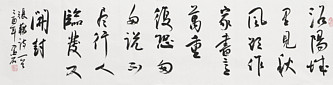 洛陽城
里見秋
風欲作
家書意
萬重
復恐匆
匆說不
尽行人
臨發又
開封
張籍詩一首